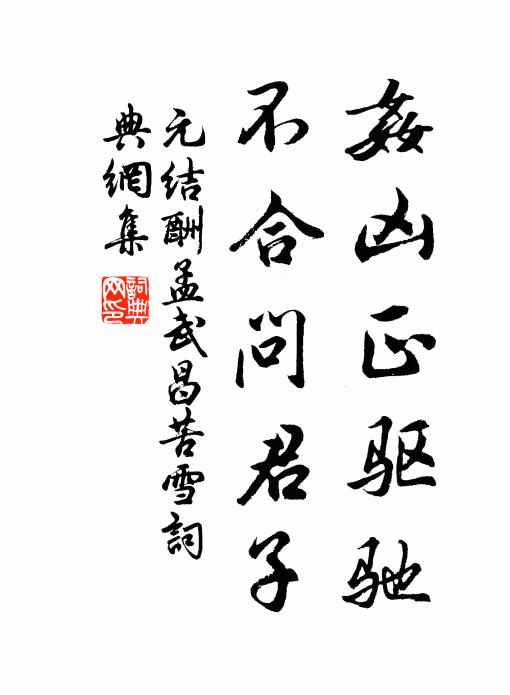 姦凶正驱驰
不合问君子
元结酬孟武昌苦雪詞
典網集
詞典网印